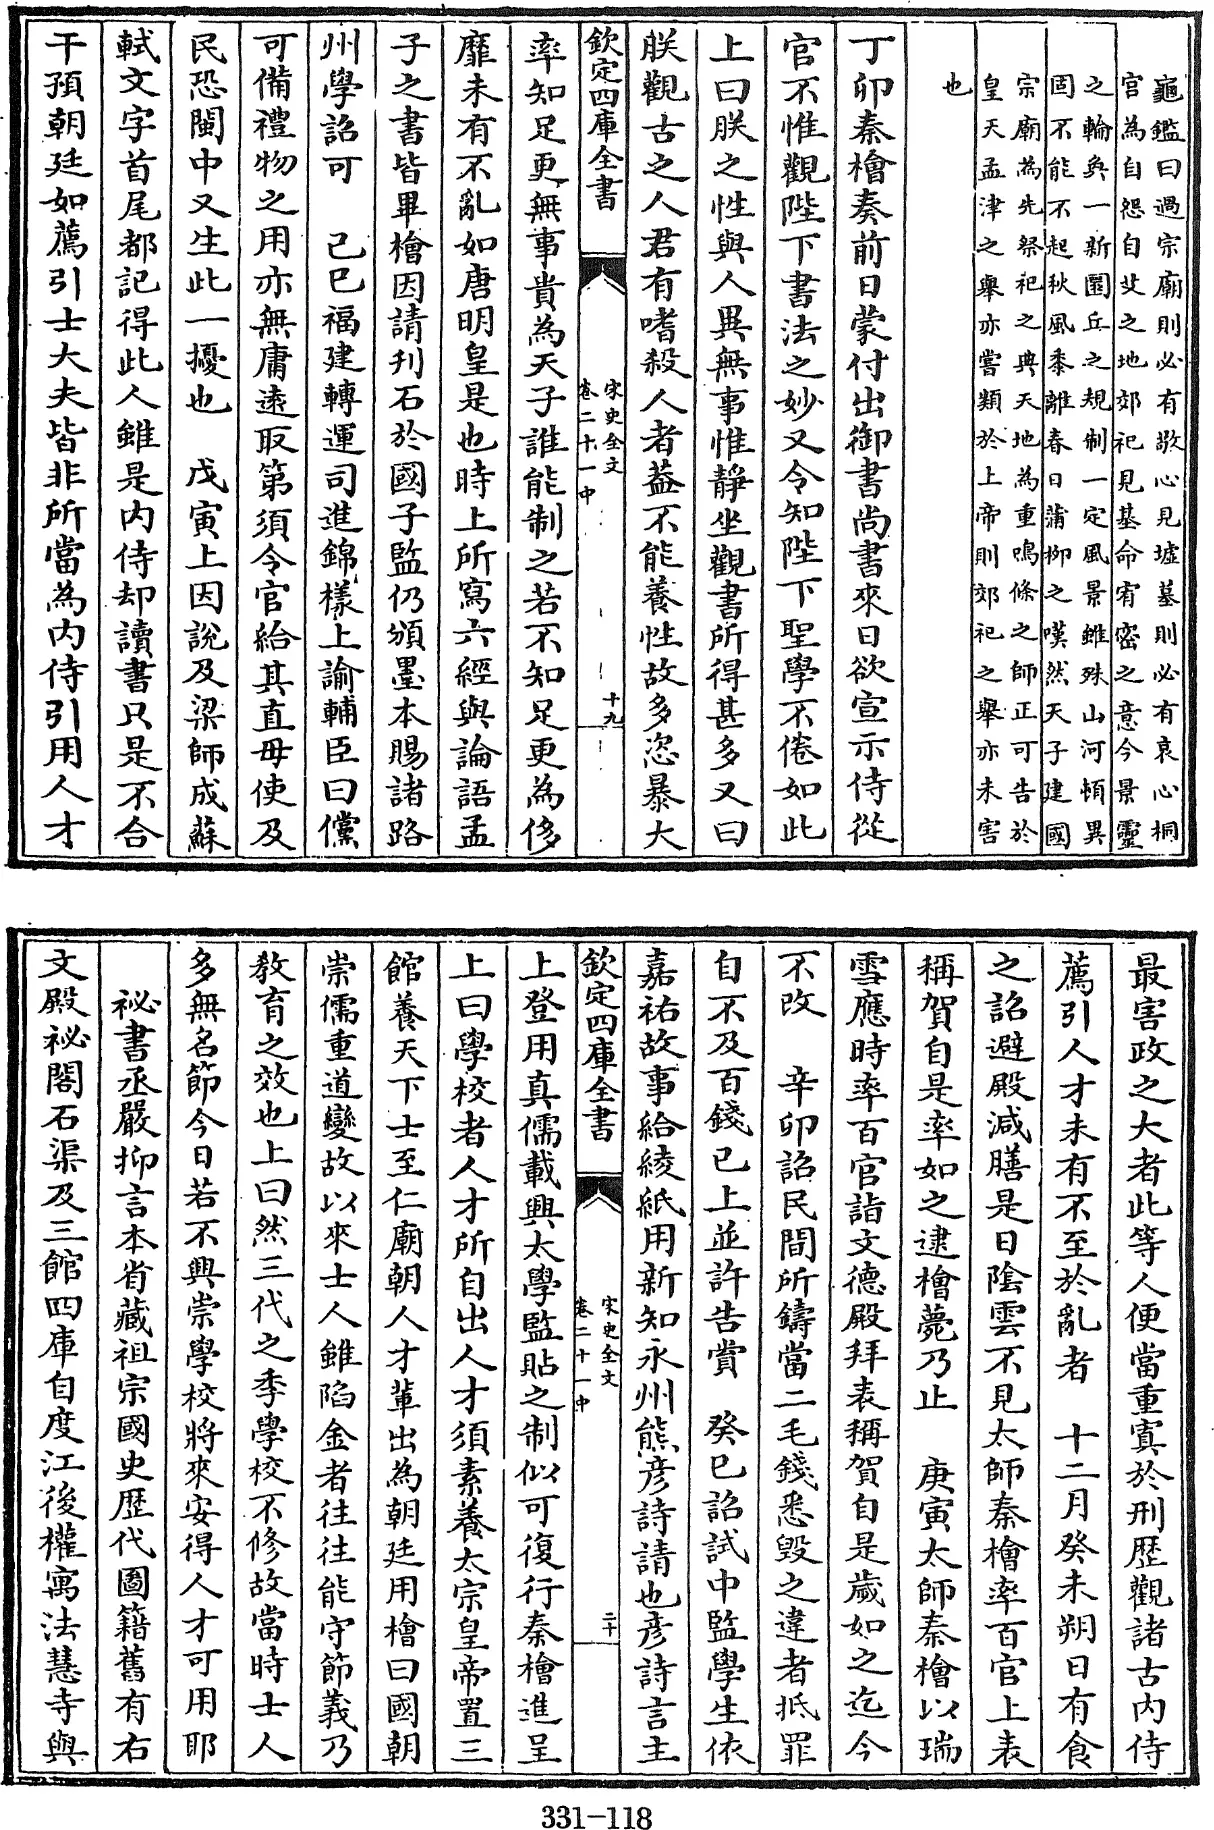 龜鑑曰過宗廟則必有敬心見墟墓則必有哀心桐
宫為自怨自艾之地郊祀見基命宥密之意今景靈
之輪奐一新圜丘之規制一定風景雖殊山河頓異
固不能不起秋風黍離春日蒲柳之嘆然天子建國
宗廟為先祭祀之典天地為重鳴條之師正可告於
皇天孟津之舉亦嘗類於上帝則郊祀之舉亦未害
也
丁卯秦檜奏前日蒙付出御書尚書來日欲宣示侍從
官不惟觀陛下書法之妙又令知陛下聖學不倦如此
上曰朕之性與人異無事惟靜坐觀書所得甚多又曰
朕觀古之人君有嗜殺人者葢不能養性故多恣暴大
欽定四庫全書
宋史全文
卷二十一中
十九
率知足更無事貴為天子誰能制之若不知足更為侈
靡未有不亂如唐明皇是也時上所寫六經與論語孟
子之書皆畢檜因請刋石於國子監仍頒墨本賜諸路
州學詔可　己巳福建轉運司進錦樣上諭輔臣曰儻
可備禮物之用亦無庸逺取第須令官給其直毋使及
民恐閩中又生此一擾也　戊寅上因説及梁師成蘇
軾文字首尾都記得此人雖是内侍却讀書只是不合
干預朝廷如薦引士大夫皆非所當為内侍引用人才
最害政之大者此等人便當重寘於刑歴觀諸古内侍
薦引人才未有不至於亂者　十二月癸未朔日有食
之詔避殿減膳是日陰雲不見太師秦檜率百官上表
稱賀自是率如之逮檜薨乃止　庚寅太師秦檜以瑞
雪應時率百官詣文德殿拜表稱賀自是嵗如之迄今
不改　辛卯詔民間所鑄當二毛錢悉毁之違者抵罪
自不及百錢已上並許告賞　癸巳詔試中監學生依
嘉祐故事給綾紙用新知永州熊彦詩請也彦詩言主
欽定四庫全書
宋史全文
卷二十一中
二十
上登用真儒載興太學監貼之制似可復行秦檜進呈
上曰學校者人才所自出人才須素養太宗皇帝置三
館養天下士至仁廟朝人才輩出為朝廷用檜曰國朝
崇儒重道變故以來士人雖陷金者往往能守節義乃
教育之效也上曰然三代之季學校不修故當時士人
多無名節今日若不興崇學校將來安得人才可用耶
祕書丞嚴抑言本省藏祖宗國史歴代圖籍舊有右
文殿祕閣石渠及三館四庫自度江後權寓法慧寺與
331-118